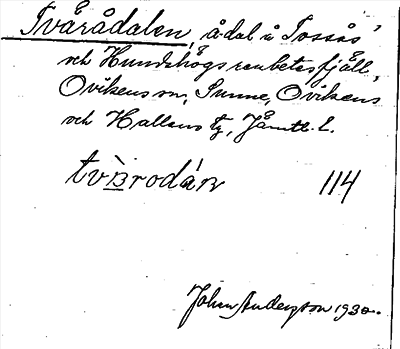 Tvärådalen, ådal i Tossås'
och Hundshögs renbetesfjäll,
Ovikens sn, Sunne, Ovikens
och Hallens tg, Jämtl. l.
114
John Anderson 1930.